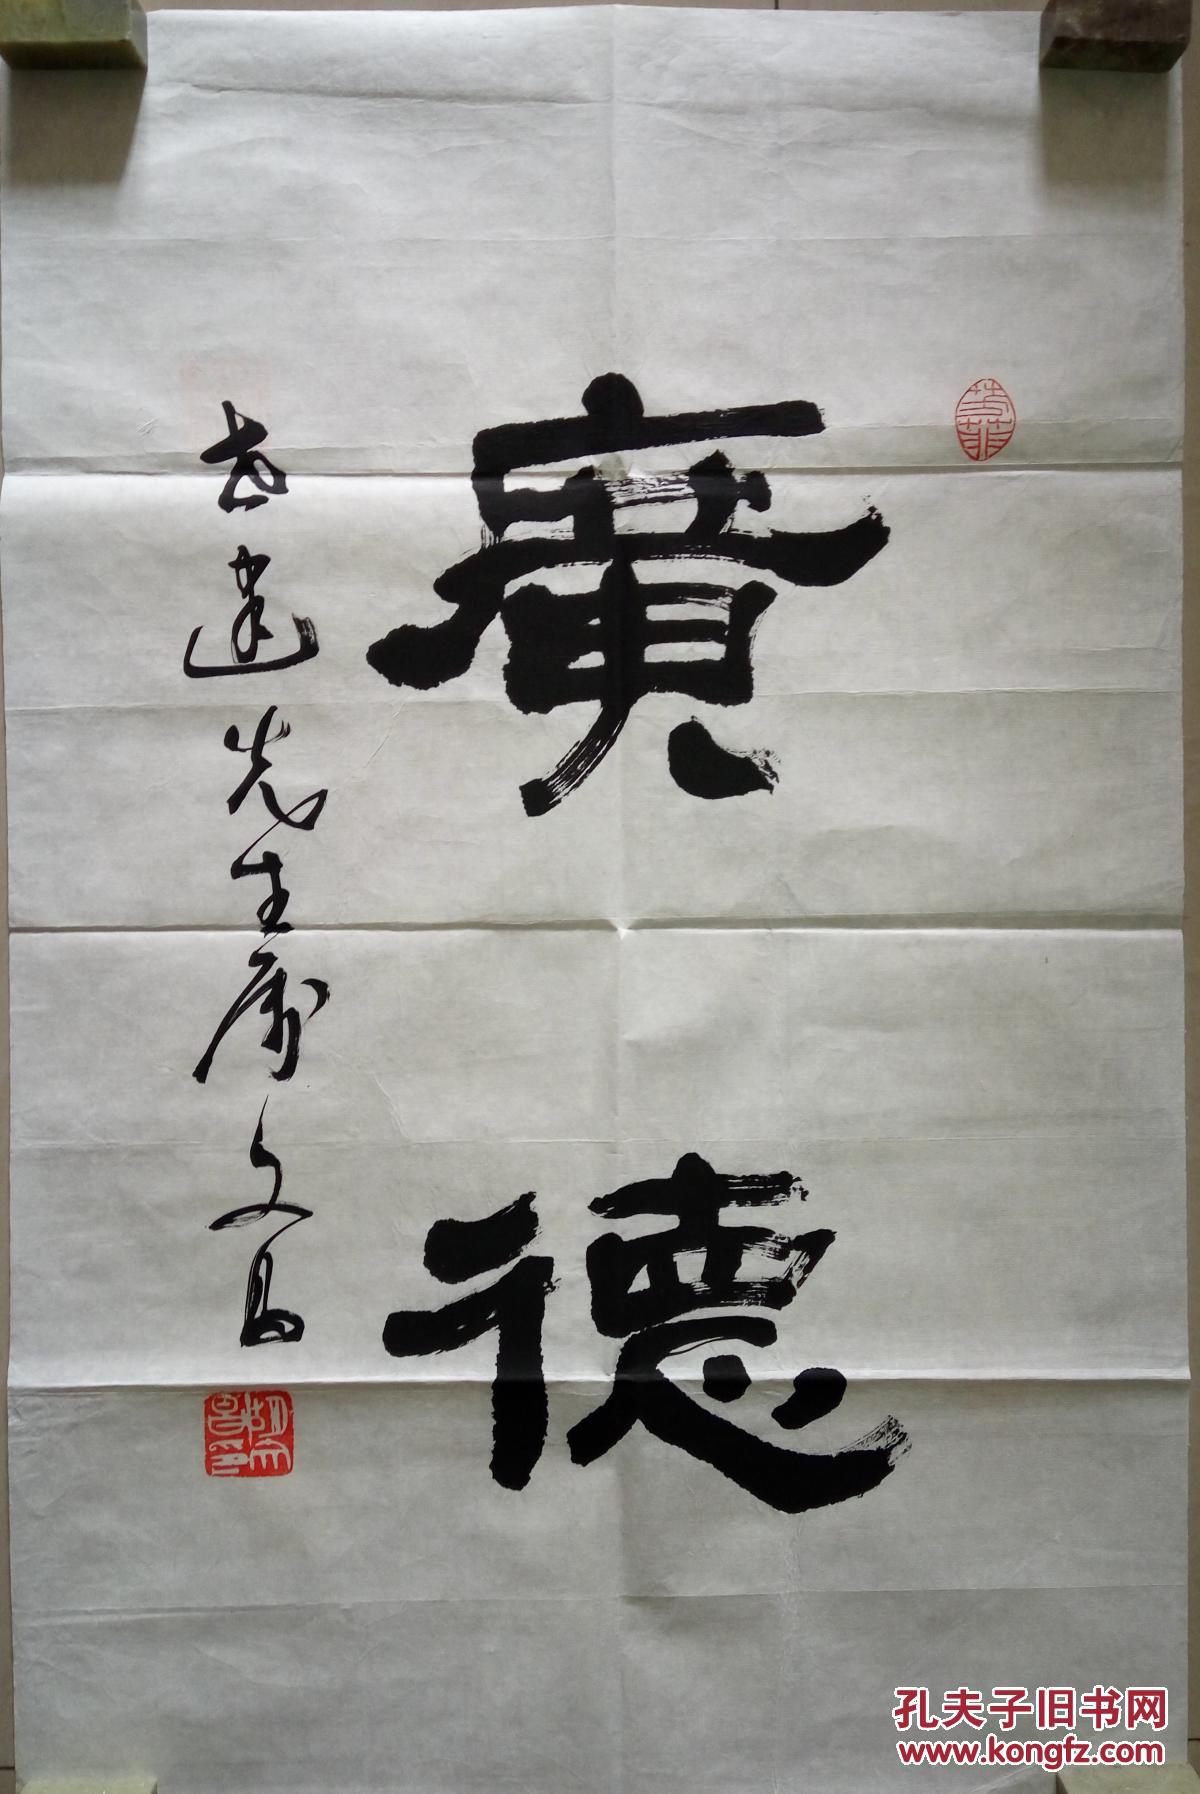 廣德
志建先生属文昌
孔夫子旧书网
www.kongfz.com